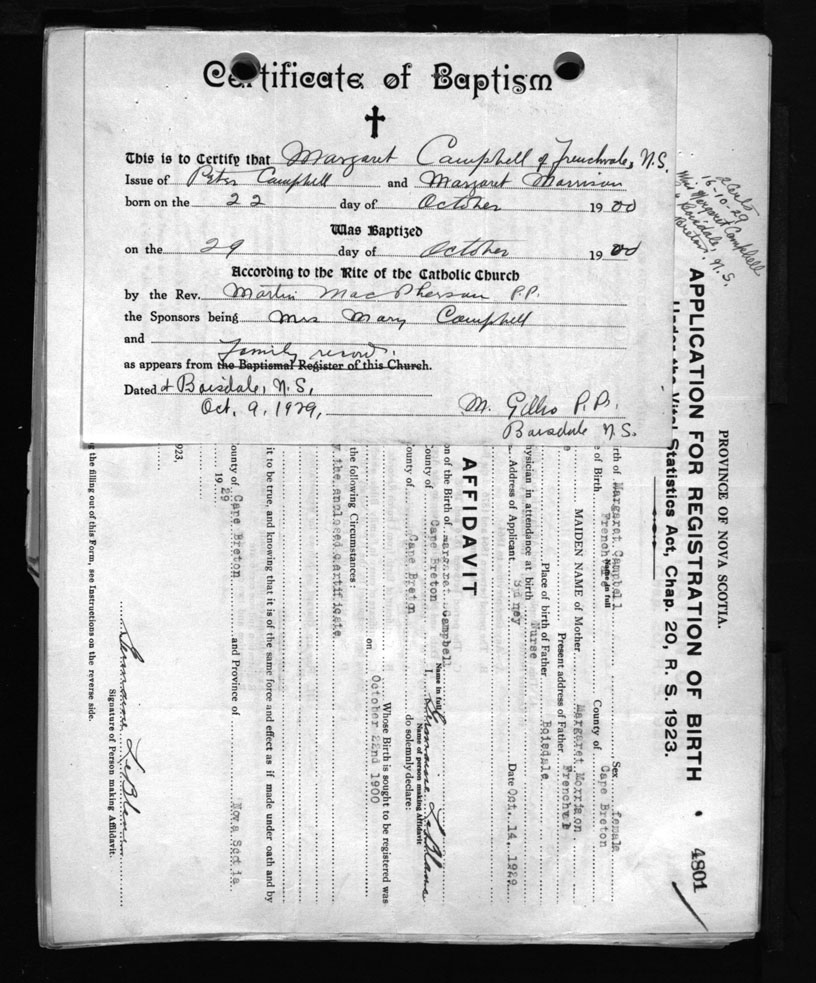 Certificate of Baptism
This is to Certify that Margaret Campbell of Frenchvale, N.S.
Issue of Peter Campbell and Margaret Morrison
born on the 22 day of October 1900
Was Baptized
on the 29 day of October 1900
According to the Rite of the Catholic Church
by the Rev. Martin MacPherson P.P.
the Sponsors being Mrs Mary Campbell
and
family record.
as appears from the Baptismal Register of this Church.
Dated at Boisdale, N.S,
Oct. 9, 1929, M. Gillis P.P.
Boisdale N.S.
16-10-29
Miss Margaret Campbell
Boisdale, N.S.
Breton.
PROVINCE OF NOVA SCOTIA.
APPLICATION FOR REGISTRATION OF BIRTH • 4801
Under the Vital Statistics Act, Chap. 20, R. S. 1923.
rth of Margaret Campbell Sex female
Name in full
e of Birth Frenchv County of Cape Breton
MAIDEN NAME of Mother Margaret Morrison
e Present address of Father Frenchvale
Place of birth of Father Boisdale
hysician in attendance at birth Nurse
Address of Applicant Sidney Date Oct. 14, 1929
AFFIDAVIT
on of the Birth of Margaret Campbell I, Germaine LeBlanc
Name in full Name of person making Affidavit
County of Cape Breton do solemnly declare:
ounty of Cape Breton
Whose Birth is sought to be registered was
on October 22nd 1900
the following Circumstances:
y the enclosed certificate
it to be true, and knowing that it is of the same force and effect as if made under oath and by
ounty of Cape Breton and Province of Nova Scotia
19 29
923,
Germaine LeBlanc
Signature of Person making Affidavit.
g the filling out of this Form, see Instructions on the reverse side.